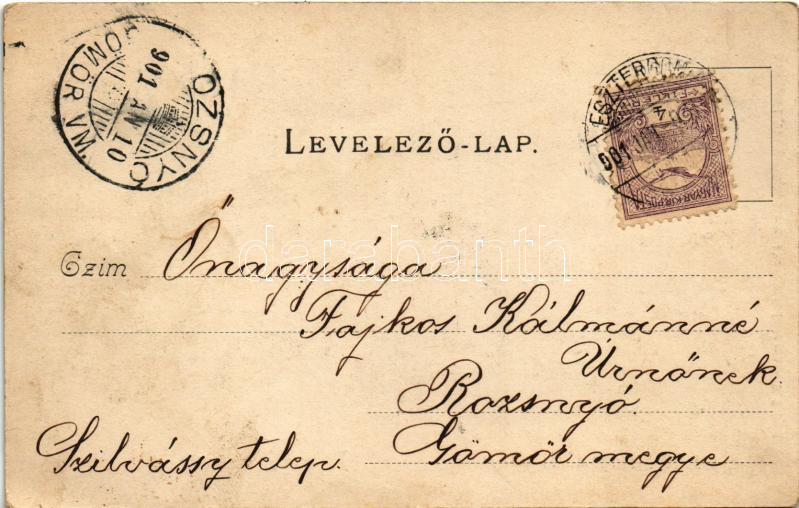 OZSNYÓ
GÖMÖR VM
901 JAN 10
ESZTERGOM
901 JAN
MAGYAR KIR. POSTA
LEVELEZŐ-LAP.
darabanth
Czim Őnagysága
Fajkos Kálmánné
Úrnőnek
Rozsnyó.
Szilvássy telep. Gömör megye